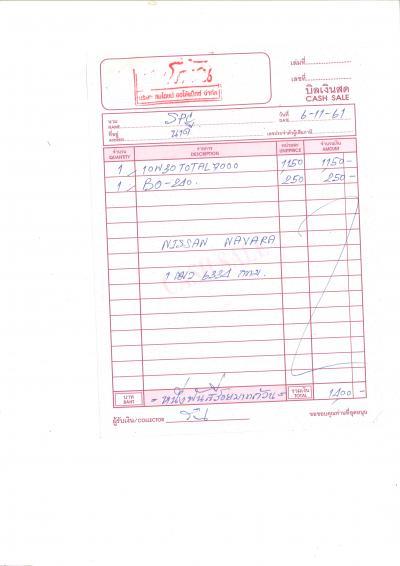 เล่มที่
เลขที่
บิลเงินสด
CASH SALE
นาม NAME SPG วันที่ DATE 6-11-61
ที่อยู่ ADDRESS เลขประจำตัวผู้เสียภาษี
จำนวน QUANTITY รายการ DESCRIPTION หน่วยละ UNITPRICE จำนวนเงิน AMOUNT
1 10W30 TOTAL 7000 1150 1150 -
1 BO-240. 250 250 -
NISSAN NAVARA
6334 กทม.
CASH SALE
บาท BAHT - หนึ่งพันสี่ร้อยบาทถ้วน - รวมเงิน TOTAL 1400 -
ผู้รับเงิน/COLLECTOR ขอขอบคุณท่านที่อุดหนุน